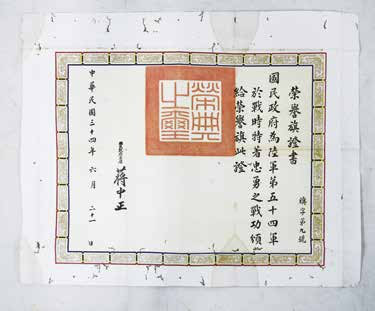 榮譽旗證書
國民政府為陸軍第五十四軍
於戰時特著忠勇之戰功頒
給榮譽旗此證
榮典之璽
蔣中正
中華民國三十四年 六月 二十一日
旗字第九號